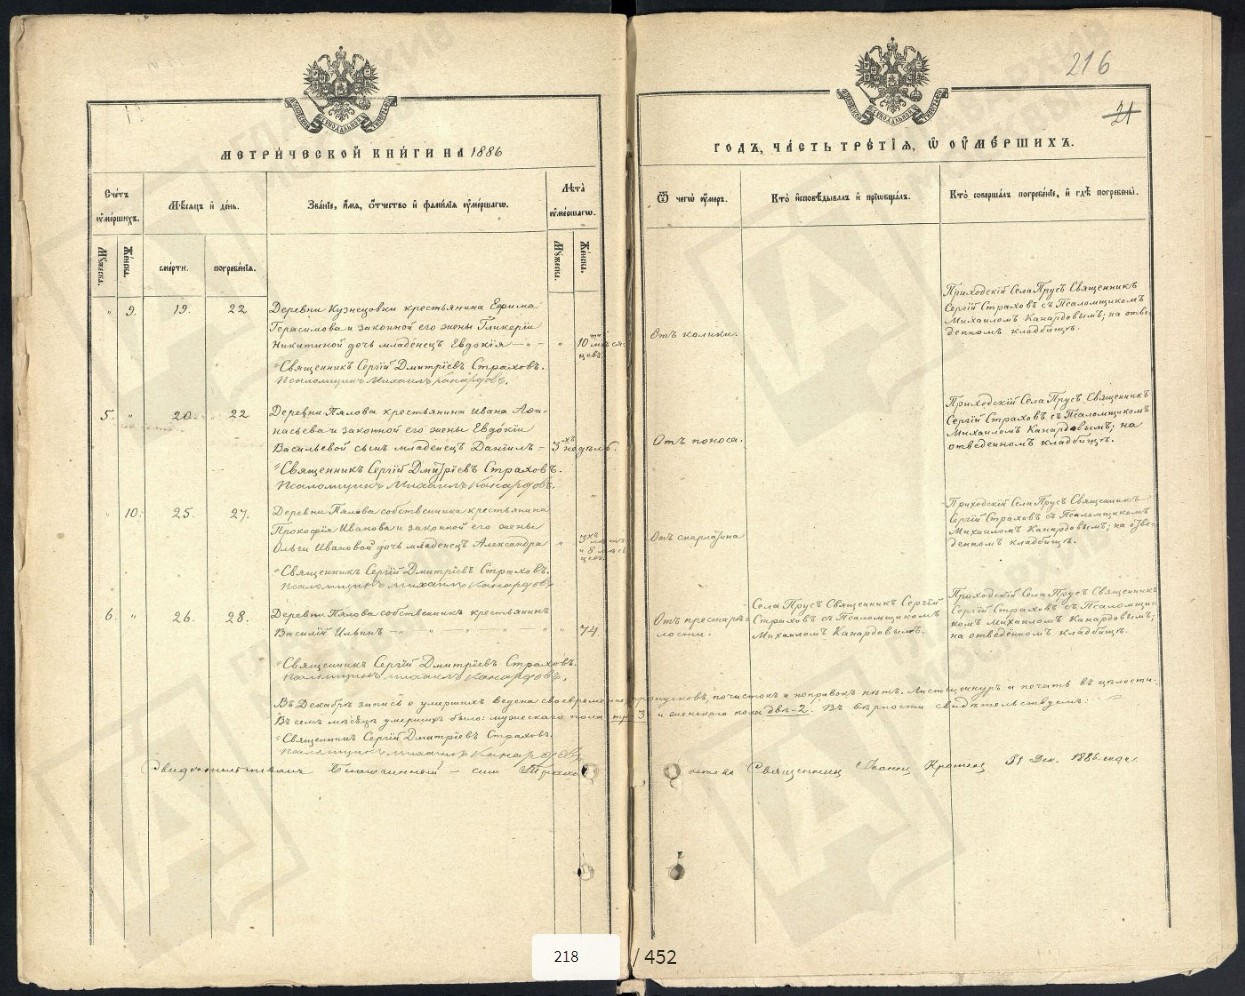 216
21
МЕТРИЧЕСКОЙ КНИГИ НА 1886
ГОДЪ, ЧАСТЬ ТРЕТІЯ, Ѿ ОУМЕРШИХЪ.
Счетъ оумершихъ.
Мѣсяцъ и день.
Званіе, имя, отчество и фамилія оумершагѡ.
Лѣта оумершагѡ.
Ѿ чегѡ оумеръ.
Кто исповѣдывалъ и пріобщалъ.
Кто совершалъ погребеніе, и гдѣ погребены.
Мужеска.
Женска.
смерти.
погребенія.
Мужеска.
Женска.
" 9. 19. 22
Деревни Кузнецовки крестьянина Ефима
Герасимова и законной его жены Гликеріи
Никитиной дочь младенецъ Евдокія " 10ти мѣся-
цевъ
Священникъ Сергій Дмитріевъ Страховъ.
Псаломщикъ Михаилъ Канардовъ.
Отъ колики.
Приходскій Села Прусъ Священникъ
Сергій Страховъ съ Псаломщикомъ
Михаиломъ Канардовымъ; на отве-
денномъ кладбищѣ.
5. " 20. 22
Деревни Пялова крестьянина Ивана Аѳа-
насьева и законной его жены Евдокіи
Васильевой сынъ младенецъ Даніилъ 3хъ недѣль.
Священникъ Сергій Дмитріевъ Страховъ.
Псаломщикъ Михаилъ Канардовъ.
Отъ поноса.
Приходскій Села Прусъ Священникъ
Сергій Страховъ съ Псаломщикомъ
Михаиломъ Канардовымъ; на
отведенномъ кладбищѣ.
" 10. 25. 27.
Деревни Пялова собственника крестьянина
Прокофія Иванова и законной его жены
Ольги Ивановой дочь младенецъ Александра "
и 8 мѣся-
цевъ
Священникъ Сергій Дмитріевъ Страховъ.
Псаломщикъ Михаилъ Канардовъ
Отъ скарлатина
Приходскій Села Прусъ Священникъ
Сергій Страховъ съ Псаломщикомъ
Михаиломъ Канардовымъ; на отве-
денномъ кладбищѣ.
6. " 26. 28.
Деревни Пялова собственникъ крестьянинъ
Василій Ильинъ 74.
Священникъ Сергій Дмитріевъ Страховъ.
Псаломщикъ Михаилъ Канардовъ.
Отъ престарѣ-
лости.
Села Прусъ Священникъ Сергій
Страховъ съ Псаломщикомъ
Михаиломъ Канардовымъ.
Приходскій Села Прусъ Священникъ
Сергій Страховъ съ Псаломщи-
комъ Михаиломъ Канардовымъ;
на отведенномъ кладбищѣ.
Въ Декабрѣ запись о умершихъ ведена своевременно пропусковъ, почистокъ и поправокъ нѣтъ. Листы, шнуръ и печать въ цѣлости.
Въ семъ мѣсяцѣ умершихъ было: мужескаго пола три-3 и женскаго пола двѣ-2. Въ вѣрности свидѣтельствуемъ:
Священникъ Сергій Дмитріевъ Страховъ.
Псаломщикъ Михаилъ Канардовъ
Благочинный Священникъ Іоаннъ 31 Дек. 1886 года
218 / 452